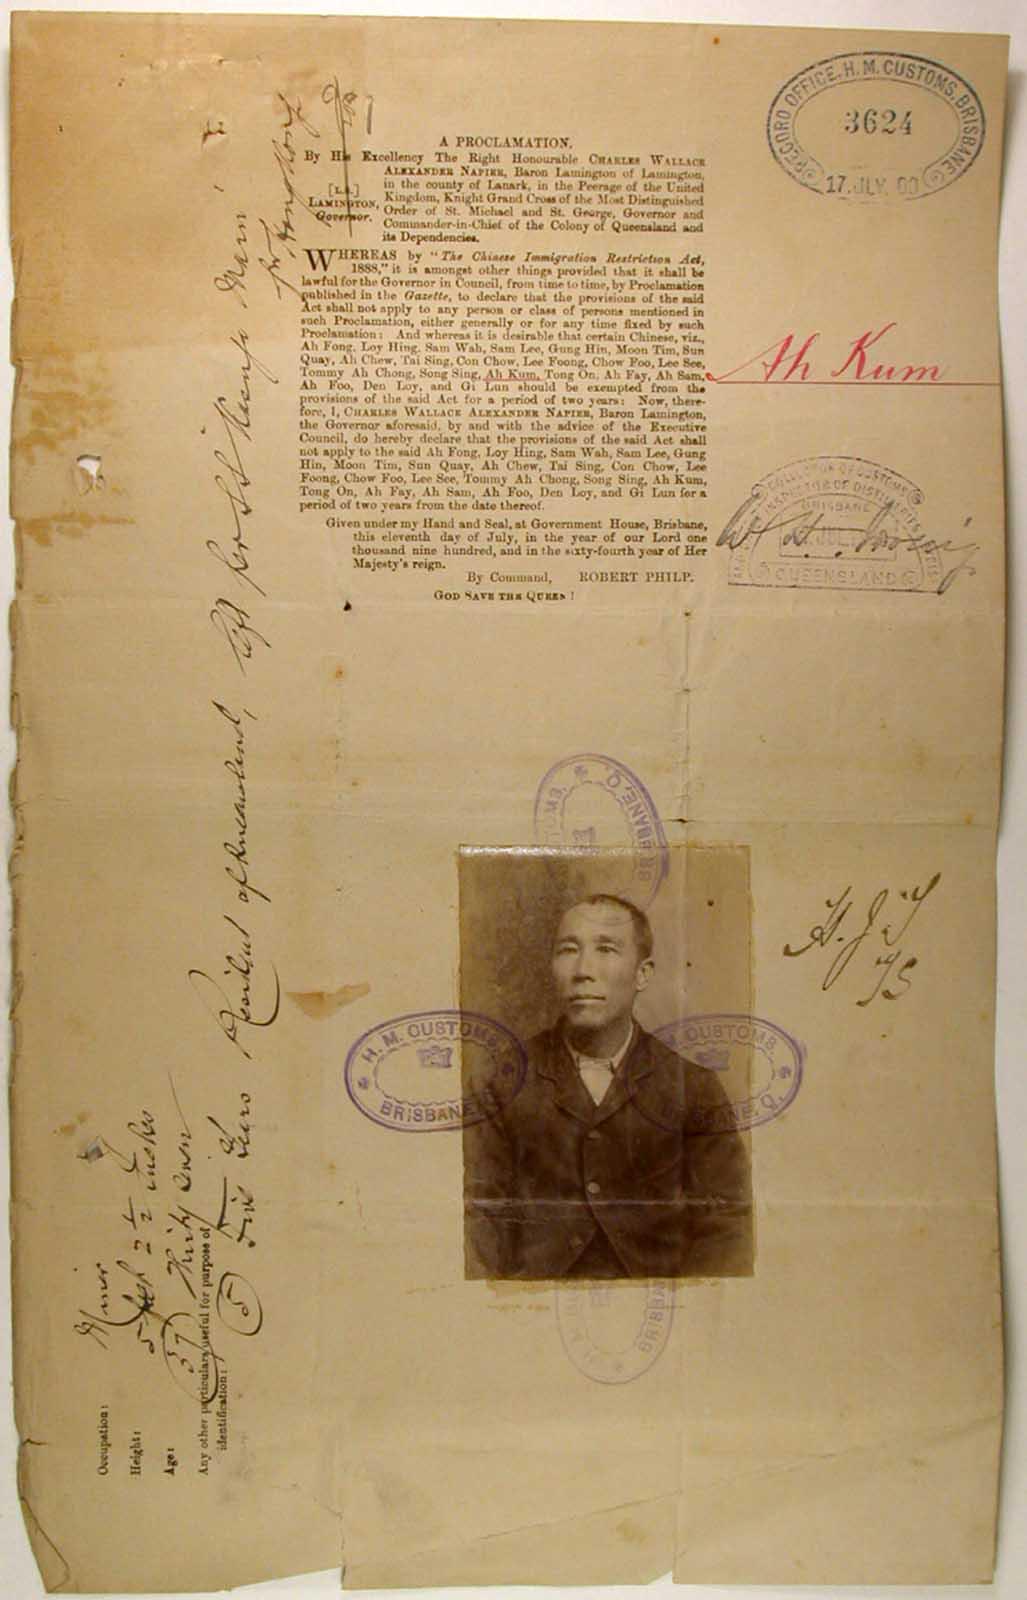 RECORD OFFICE, H. M. CUSTOMS, BRISBANE
3624
17. JLY. 00
A PROCLAMATION.
By His Excellency The Right Honourable CHARLES WALLACE
ALEXANDER NAPIER, Baron Lamington of Lamington,
in the county of Lanark, in the Peerage of the United
Kingdom, Knight Grand Cross of the Most Distinguished
Order of St. Michael and St. George, Governor and
Commander-in-Chief of the Colony of Queensland and
its Dependencies.
[L.S.]
LAMINGTON,
Governor.
WHEREAS by "The Chinese Immigration Restriction Act,
1888," it is amongst other things provided that it shall be
lawful for the Governor in Council, from time to time, by Proclamation
published in the Gazette, to declare that the provisions of the said
Act shall not apply to any person or class of persons mentioned in
such Proclamation, either generally or for any time fixed by such
Proclamation: And whereas it is desirable that certain Chinese, viz.,
Ah Fong, Loy Hing, Sam Wah, Sam Lee, Gung Hin, Moon Tim, Sun
Quay, Ah Chew, Tai Sing, Con Chow, Lee Foong, Chow Foo, Lee See,
Tommy Ah Chong, Song Sing, Ah Kum, Tong On, Ah Fay, Ah Sam,
Ah Foo, Den Loy, and Gi Lun should be exempted from the
provisions of the said Act for a period of two years: Now, there-
fore, I, CHARLES WALLACE ALEXANDER NAPIER, Baron Lamington,
the Governor aforesaid, by and with the advice of the Executive
Council, do hereby declare that the provisions of the said Act shall
not apply to the said Ah Fong, Loy Hing, Sam Wah, Sam Lee, Gung
Hin, Moon Tim, Sun Quay, Ah Chew, Tai Sing, Con Chow, Lee
Foong, Chow Foo, Lee See, Tommy Ah Chong, Song Sing, Ah Kum,
Tong On, Ah Fay, Ah Sam, Ah Foo, Den Loy, and Gi Lun for a
period of two years from the date thereof.
Given under my Hand and Seal, at Government House, Brisbane,
this eleventh day of July, in the year of our Lord one
thousand nine hundred, and in the sixty-fourth year of Her
Majesty's reign.
By Command, ROBERT PHILP.
GOD SAVE THE QUEEN!
Ah Kum
COLLECTOR OF CUSTOMS
INSPECTOR OF DISTILLERIES
BRISBANE
QUEENSLAND
H. M. CUSTOMS.
BRISBANE, Q.
H. M. CUSTOMS.
BRISBANE, Q.
CUSTOMS.
BRISBANE, Q.
BRISBANE
H. J. T
TS
Occupation: Miner
Height: 5 feet 2 1/2 inches
Age: 37 Thirty seven
Any other particulars useful for purpose of
identification:
5 Five Years Resident of Queensland, left per S.S. Maru
for Hong Kong